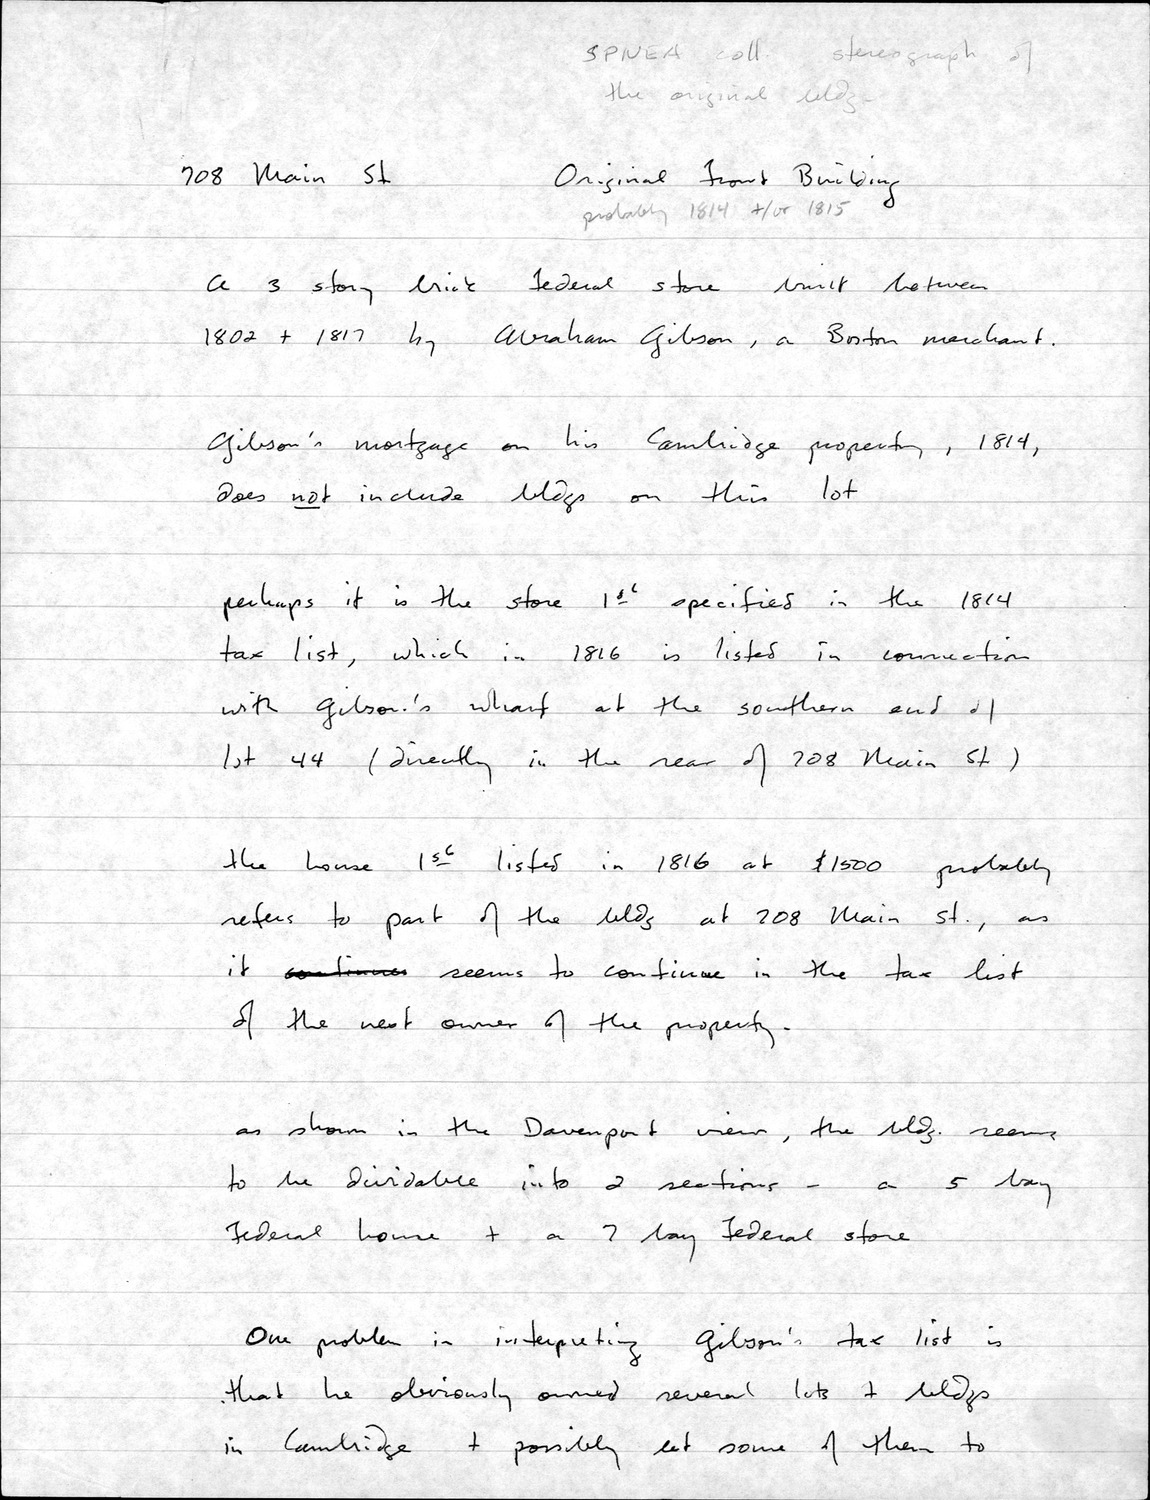 SPNEA coll stereograph of
the original bldg.
708 Main St Original Front Building
probably 1814 +/or 1815
a 3 story brick Federal store built between
1802 + 1817 by Abraham Gibson, a Boston merchant.
Gibson's mortgage on his Cambridge property, 1814,
does not include bldgs on this lot
perhaps it is the store 1st specified in the 1814
tax list, which in 1816 is listed in connection
with Gibson's wharf at the southern end of
lot 44 (directly in the rear of 708 Main St)
the house 1st listed in 1816 at $1500 probably
refers to part of the bldg at 708 Main St., as
it continues seems to continue in the tax list
of the next owner of the property.
as shown in the Davenport view, the bldg. seems
to be dividable into 2 sections - a 5 bay
Federal house + a 7 bay Federal store
One problem in interpreting Gibson's tax list is
that he obviously owned several lots + bldgs
in Cambridge + possibly let some of them to